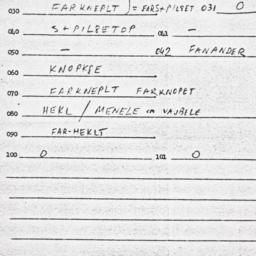 030 FARKNEPLT ) = FARS+PILBET 031 0
040 S+PILBETOP 041 –
050 – 042 FANANDER
060 KNOPKSE
070 FARKNEPLT FARKNOPET
080 HEKL / MENELE en VAJBELE
090 FAR-HEKLT
100 0 101 0